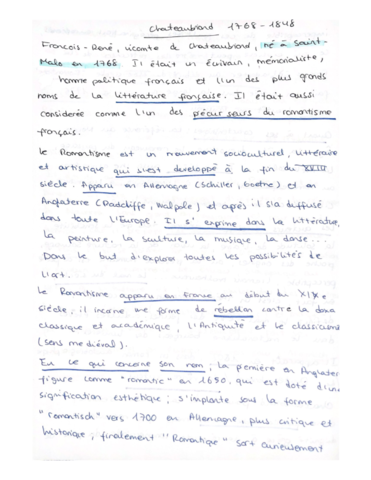 Chateaubriand 1768-1848
François-René, vicomte de Chateaubriand, né à Saint-
Malo en 1768. Il était un écrivain, mémorialiste,
homme politique français et l'un des plus grands
noms de la littérature française. Il était aussi
considerée comme l'un des précurseurs du romantisme
français.
Le Romantisme est un mouvement socioculturel, littéraire
et artistique qui s'est developpé à la fin du XVIII
siècle. Apparu en Allemagne (Schiller, Goethe) et en
Angleterre (Radcliffe, Walpole) et après il s'a diffusé
dans toute l'Europe. Il s'exprime dans la littérature,
la peinture, la sculture, la musique, la danse...
Dans le but d'explorer toutes les possibilités de
l'art.
Le Romantisme apparu en France au début du XIXe
siècle, il incarne une forme de rébellion contre la
classique et académique, l'Antiquité et le classicisme
(sens mediéval).
En ce qui concerne son nom, la première en Angleter
figure comme "romantic" en 1650, qui est doté d'un
signification esthétique; s'implante sous la forme
"romantisch" vers 1700 en Allemagne, plus critique et
historique, finalement "Romantique" sort curieusement